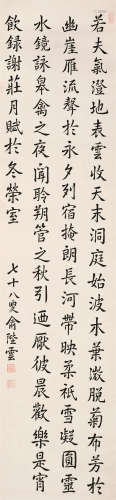 若夫氣澄地表雲收天末洞庭始波木葉微脫菊布芳於
幽崖雁流聲於永夕列宿掩朗長河帶映柔祇雪凝圓靈
水鏡詠皋禽之夜聞聆朔管之秋引迺厭彼晨歡樂是宵
飲錄謝莊月賦於冬榮室
七十八叟俞陛雲